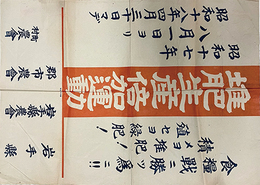 堆肥生産倍加運動
昭和十七年
八月一日ヨリ
昭和十八年四月三十日マデ
食糧戰ニ勝ツ為ニ!!
積メヨ堆肥!
殖セヨ緑肥!
岩手縣
岩手縣農會
郡市農會
町村農會